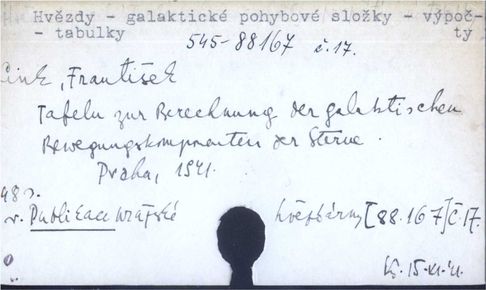 Hvězdy - galaktické pohybové složky - výpoč-
- tabulky ty
545-88167 č.17.
Link, František
Tafeln zur Berechnung der galaktischen
Bewegungskomponenten der Sterne.
Praha, 1941.
48 s.
v. Publikace Pražské hvězdárny [88.167] č.17.
15.XI.41.